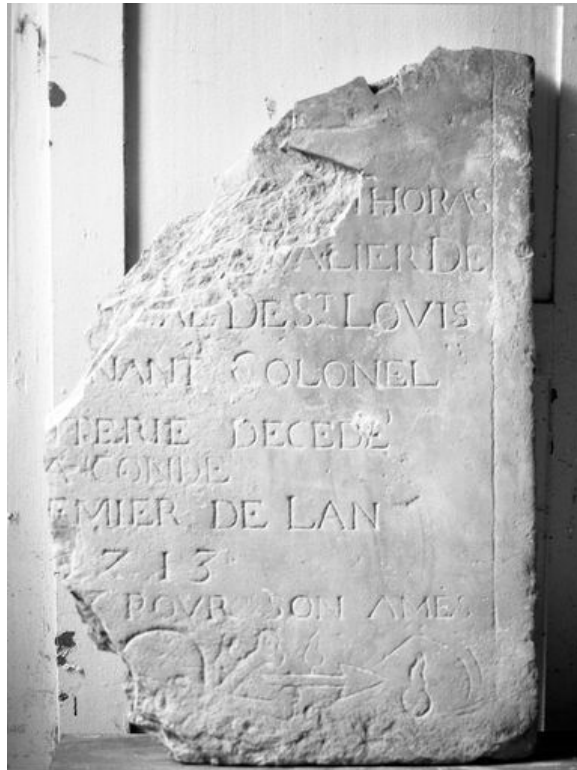 THORAS
ALIER DE
DE ST LOVIS
NANT COLONEL
TERIE DECEDE
A CONDE
EMIER DE LAN
713
POVR SON AMES